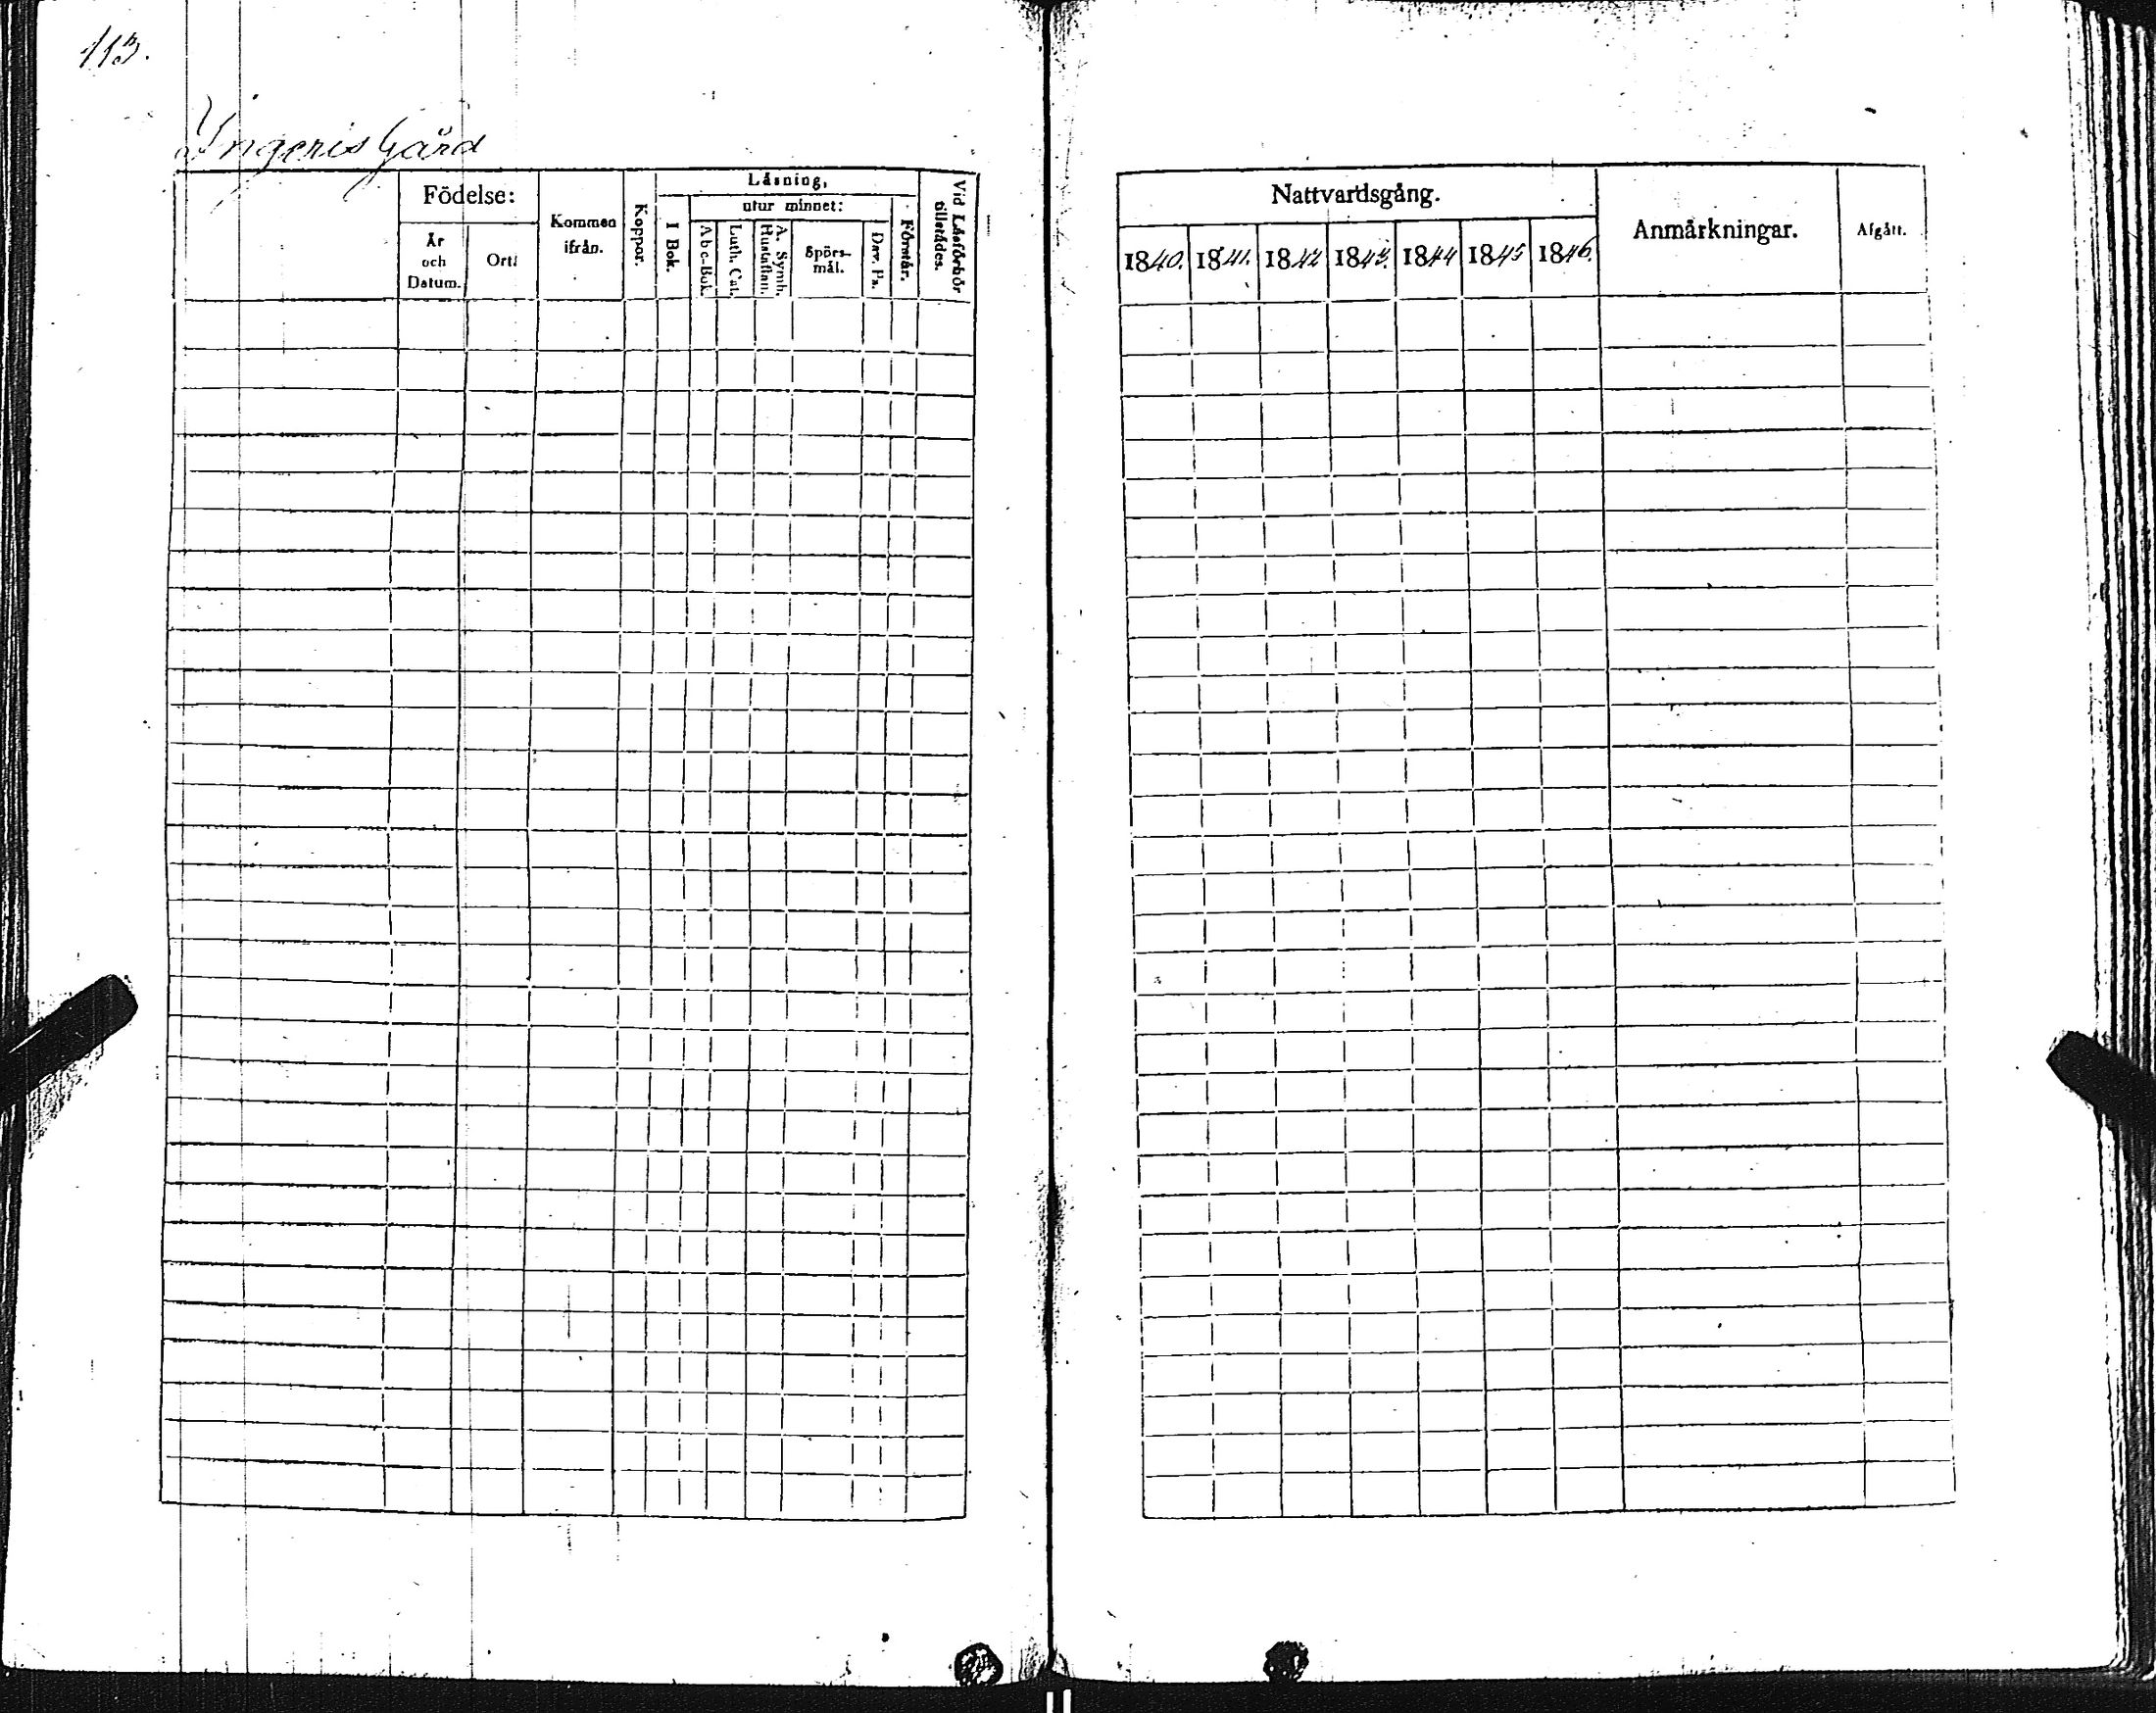 113.
Yngeris Gård
Födelse:
År och Datum.
Ort:
Kommen ifrån.
Koppor.
Läsning,
I Bok.
utur minnet:
Abc-Bok.
Luth. Cat.
A. Symb. Hustaflan.
Spörs-mål.
Dav. Ps.
Förstår.
Vid Läsförhör tillstädes.
Nattvardsgång.
1840. 1841. 1842 1843. 1844 1845 1846.
Anmärkningar.
Afgått.